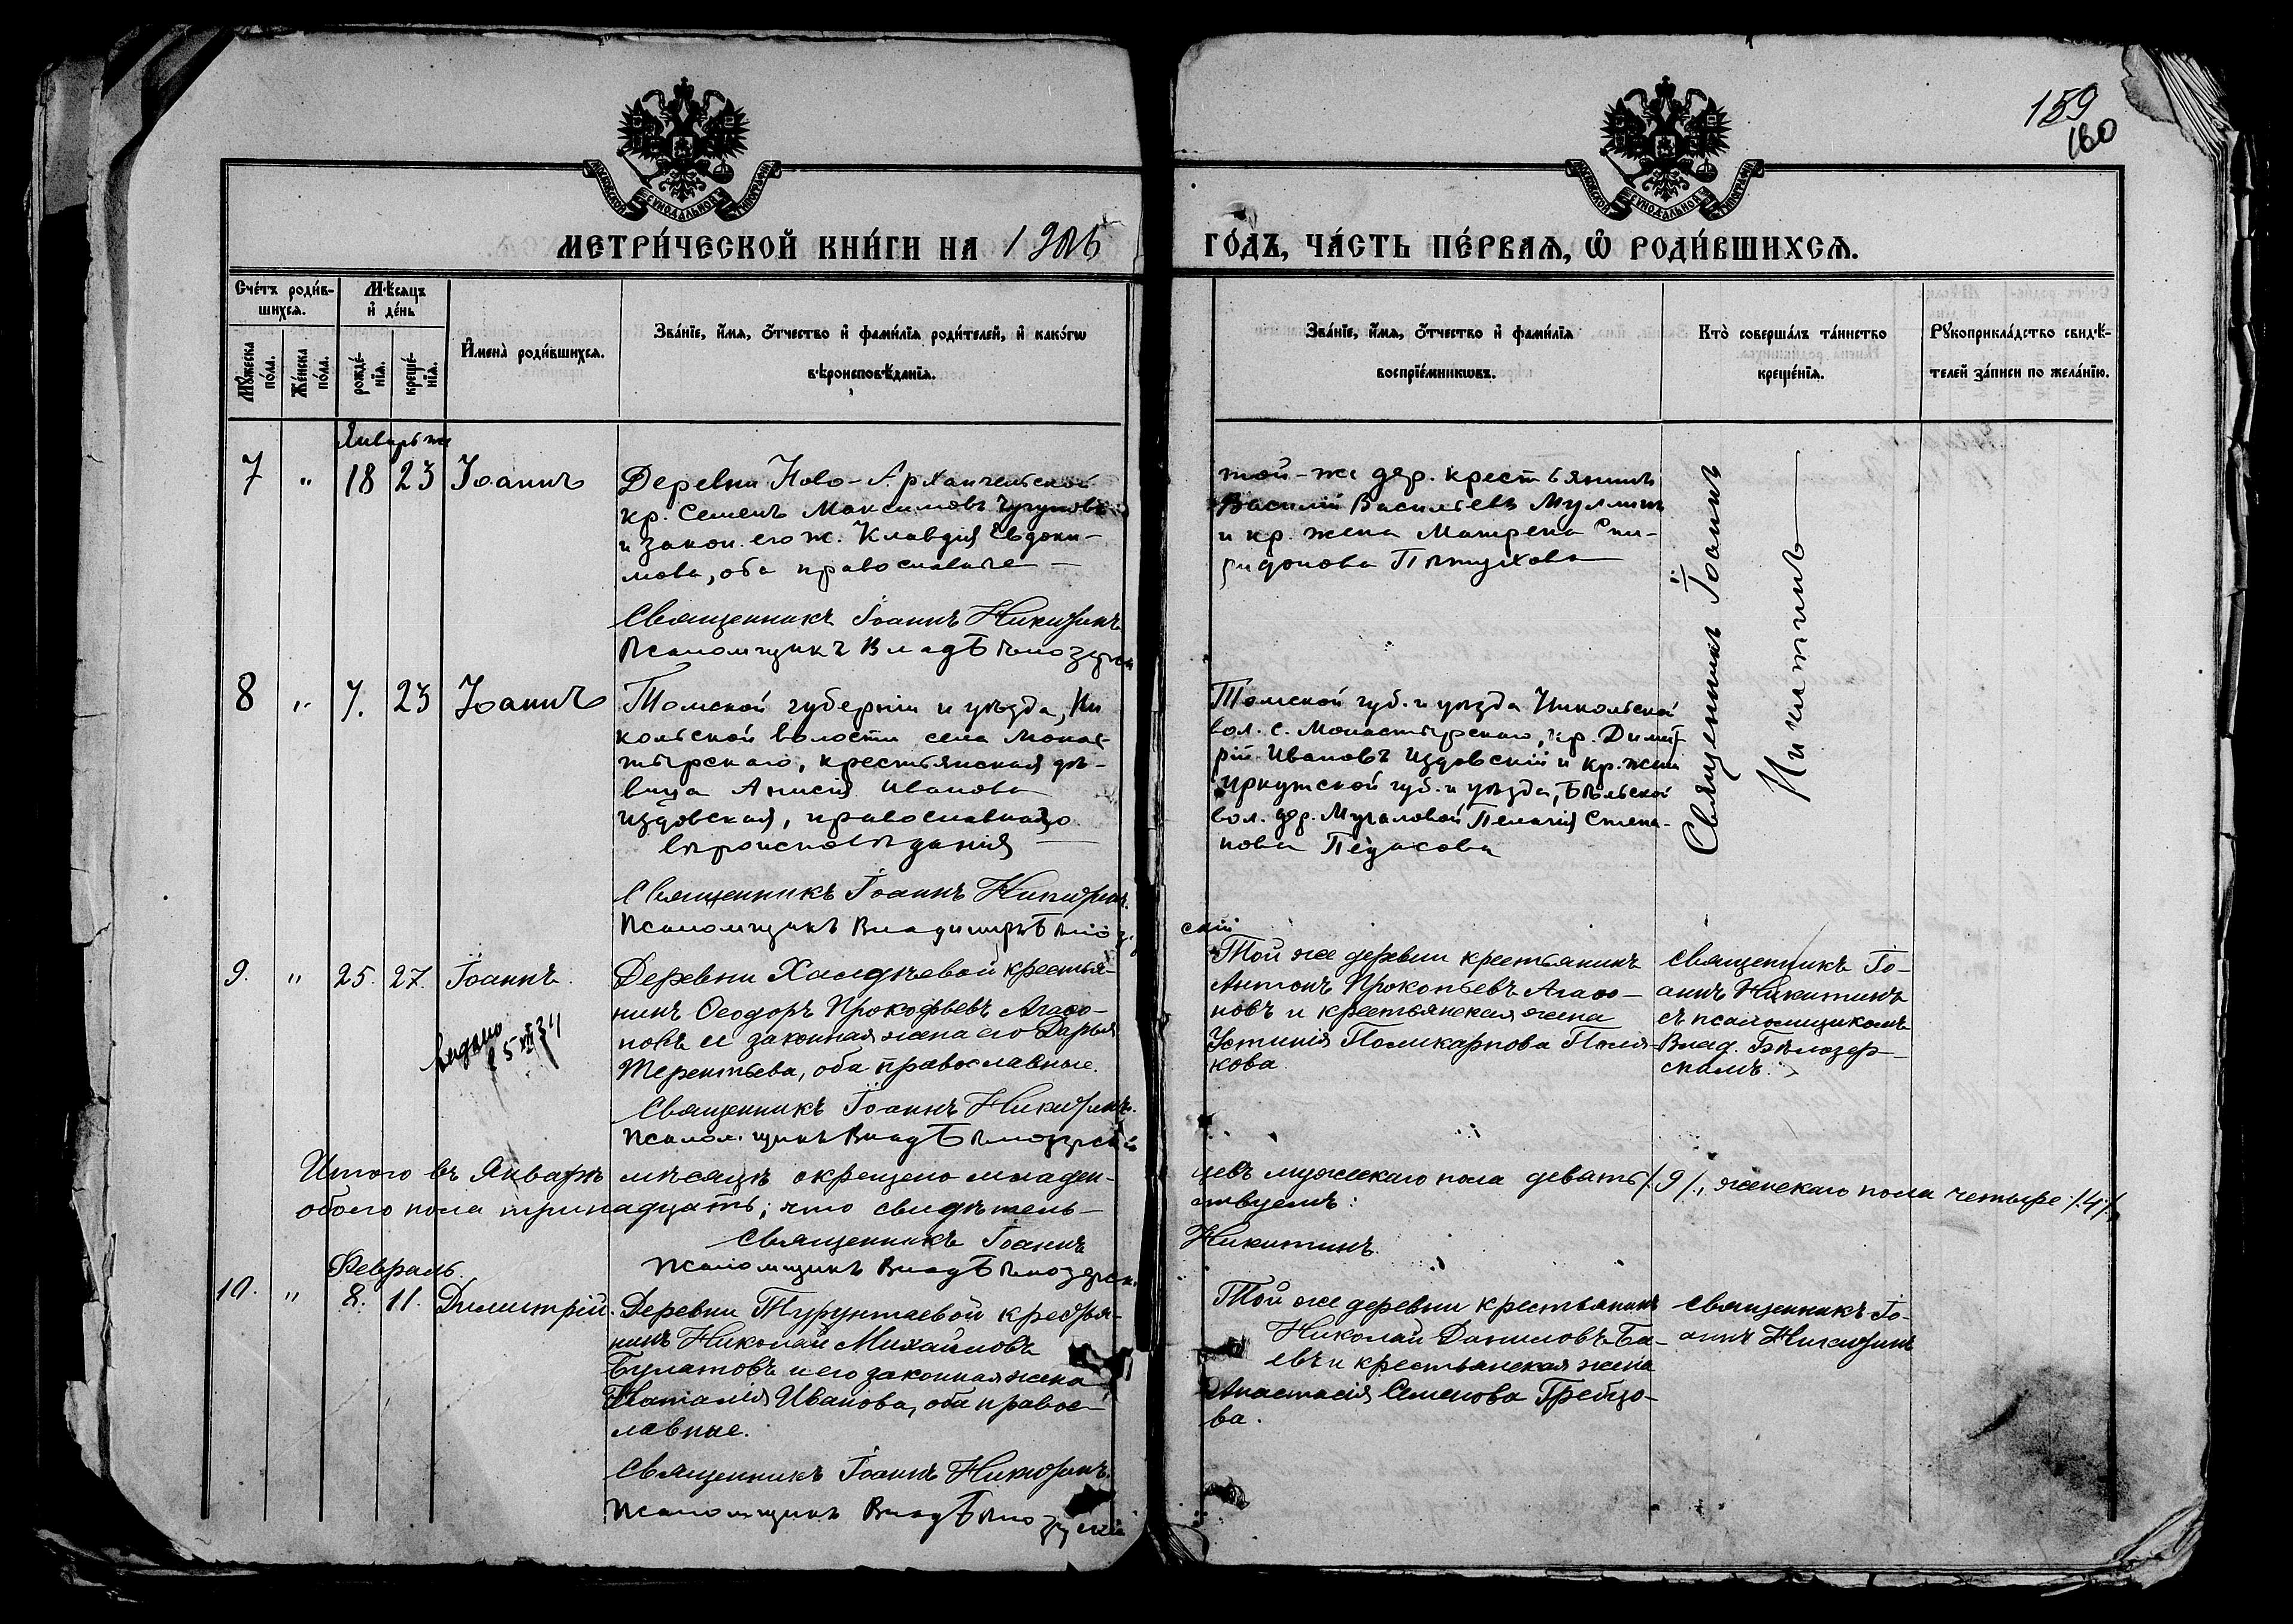 159
160
МЕТРИ́ЧЕСКОЙ КНИ́ГИ НА 1906
ГО́ДЪ, ЧА́СТЬ ПЕ́РВАѦ, Ѡ҆ РОДИ́ВШИХСѦ.
Сче́тъ роди́в-
шихсѧ.
Мѣ́сѧцъ
и҆ де́нь
Мꙋ́жеска
по́ла.
Же́нска
по́ла.
рожде́-
нїѧ.
креще́-
нїѧ.
И҆мена̀ роди́вшихсѧ.
Зва́нїе, и҆́мѧ, ѻ҆́тчество и҆ фами́лїѧ роди́телей, и҆ како́гѡ
вѣроисповѣ́данїѧ.
Зва́нїе, и҆́мѧ, ѻ҆́тчество и҆ фами́лїѧ
воспрїе́мникѡвъ.
Кто̀ соверша́лъ та́инство
креще́нїѧ.
Рꙋкоприкла́дство свидѣ́-
телей за́писи по жела́нїю.
Январь же
7 " 18 23 Іоаннъ
Деревни Ново-Архангельской
кр. Семенъ Максимовъ Чугуновъ
и закон. его ж. Клавдія Евдоки-
мова, оба православные
Священникъ Іоаннъ Никитинъ
Псаломщикъ Влад Бѣлозерск
той-же дер. крестьянинъ
Василій Васильевъ Муллинъ
и кр. жена Матрена Спи-
ридонова Пѣтухова
Священникъ Іоаннъ
Никитинъ
8 " 7. 23 Іоаннъ
Томской губерніи и уѣзда, Ни
кольской волости села Монас-
тырскаго, крестьянская дѣ-
вица Анисія Иванова
Издовская, православнаго
вѣроисповѣданія
Священникъ Іоаннъ Никитинъ.
Псаломщикъ Владимиръ Бѣлоз
скій
Томской губ. и уѣзда Никольской
вол. с. Монастырскаго, кр. Димит
рій Ивановъ Издовскій и кр. жена
Иркутской губ. и уѣзда, Бѣльской
вол. дер. Мугаловой Пелагія Степа-
нова
9. " 25. 27. Іоаннъ.
выдано
Деревни Халдѣевой крестья-
нинъ Ѳеодоръ Прокофьевъ Агаѳо-
новъ и законная жена его Дарья
Терентьева, оба православные.
Священникъ Іоаннъ Никитинъ.
Псаломщикъ Влад Бѣлозерскій
Той же деревни крестьянинъ
Антонъ Прокопьевъ Агаѳо-
новъ и крестьянская жена
Устинія Поликарпова Поля-
кова
Священникъ Іо-
аннъ Никитинъ
съ псаломщикомъ
Влад. Бѣлозер-
скимъ.
Итого въ Январѣ мѣсяцѣ окрещено младен-
цевъ мужескаго пола девять /.9/., женскаго пола четыре /.4./,
обоего пола тринадцать; что свидѣтель-
ствуемъ:
Священникъ Іоаннъ
Никитинъ.
Псаломщикъ Влад Бѣлозерск.
Февраль
10. " 8. 11. Димитрій.
Деревни Турунтаевой крестья-
нинъ Николай Михайловъ
Булатовъ и его законная жена
Наталія Иванова, оба право-
славные.
Священникъ Іоаннъ Никитинъ.
Псаломщикъ Влад Бѣлозерскій
Той же деревни крестьянинъ
Николай Даниловъ Ба-
евъ и крестьянская жена
Анастасія Семенова Гребцо-
ва.
Священникъ Іо-
аннъ Никитинъ